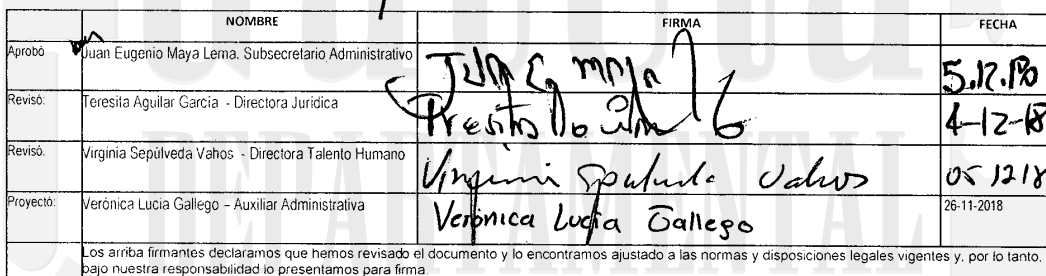 NOMBRE FIRMA FECHA
Aprobó Juan Eugenio Maya Lema. Subsecretario Administrativo 5.12.
Revisó: Teresita Aguilar García - Directora Jurídica 4-12-18
Revisó. Virginia Sepúlveda Vahos - Directora Talento Humano Virginia Sepulveda Vahos 05 12 18
Proyectó: Verónica Lucia Gallego – Auxiliar Administrativa Verónica Lucía Gallego 26-11-2018
Los arriba firmantes declaramos que hemos revisado el documento y lo encontramos ajustado a las normas y disposiciones legales vigentes y, por lo tanto,
bajo nuestra responsabilidad lo presentamos para firma.
DEPARTAMENTAL